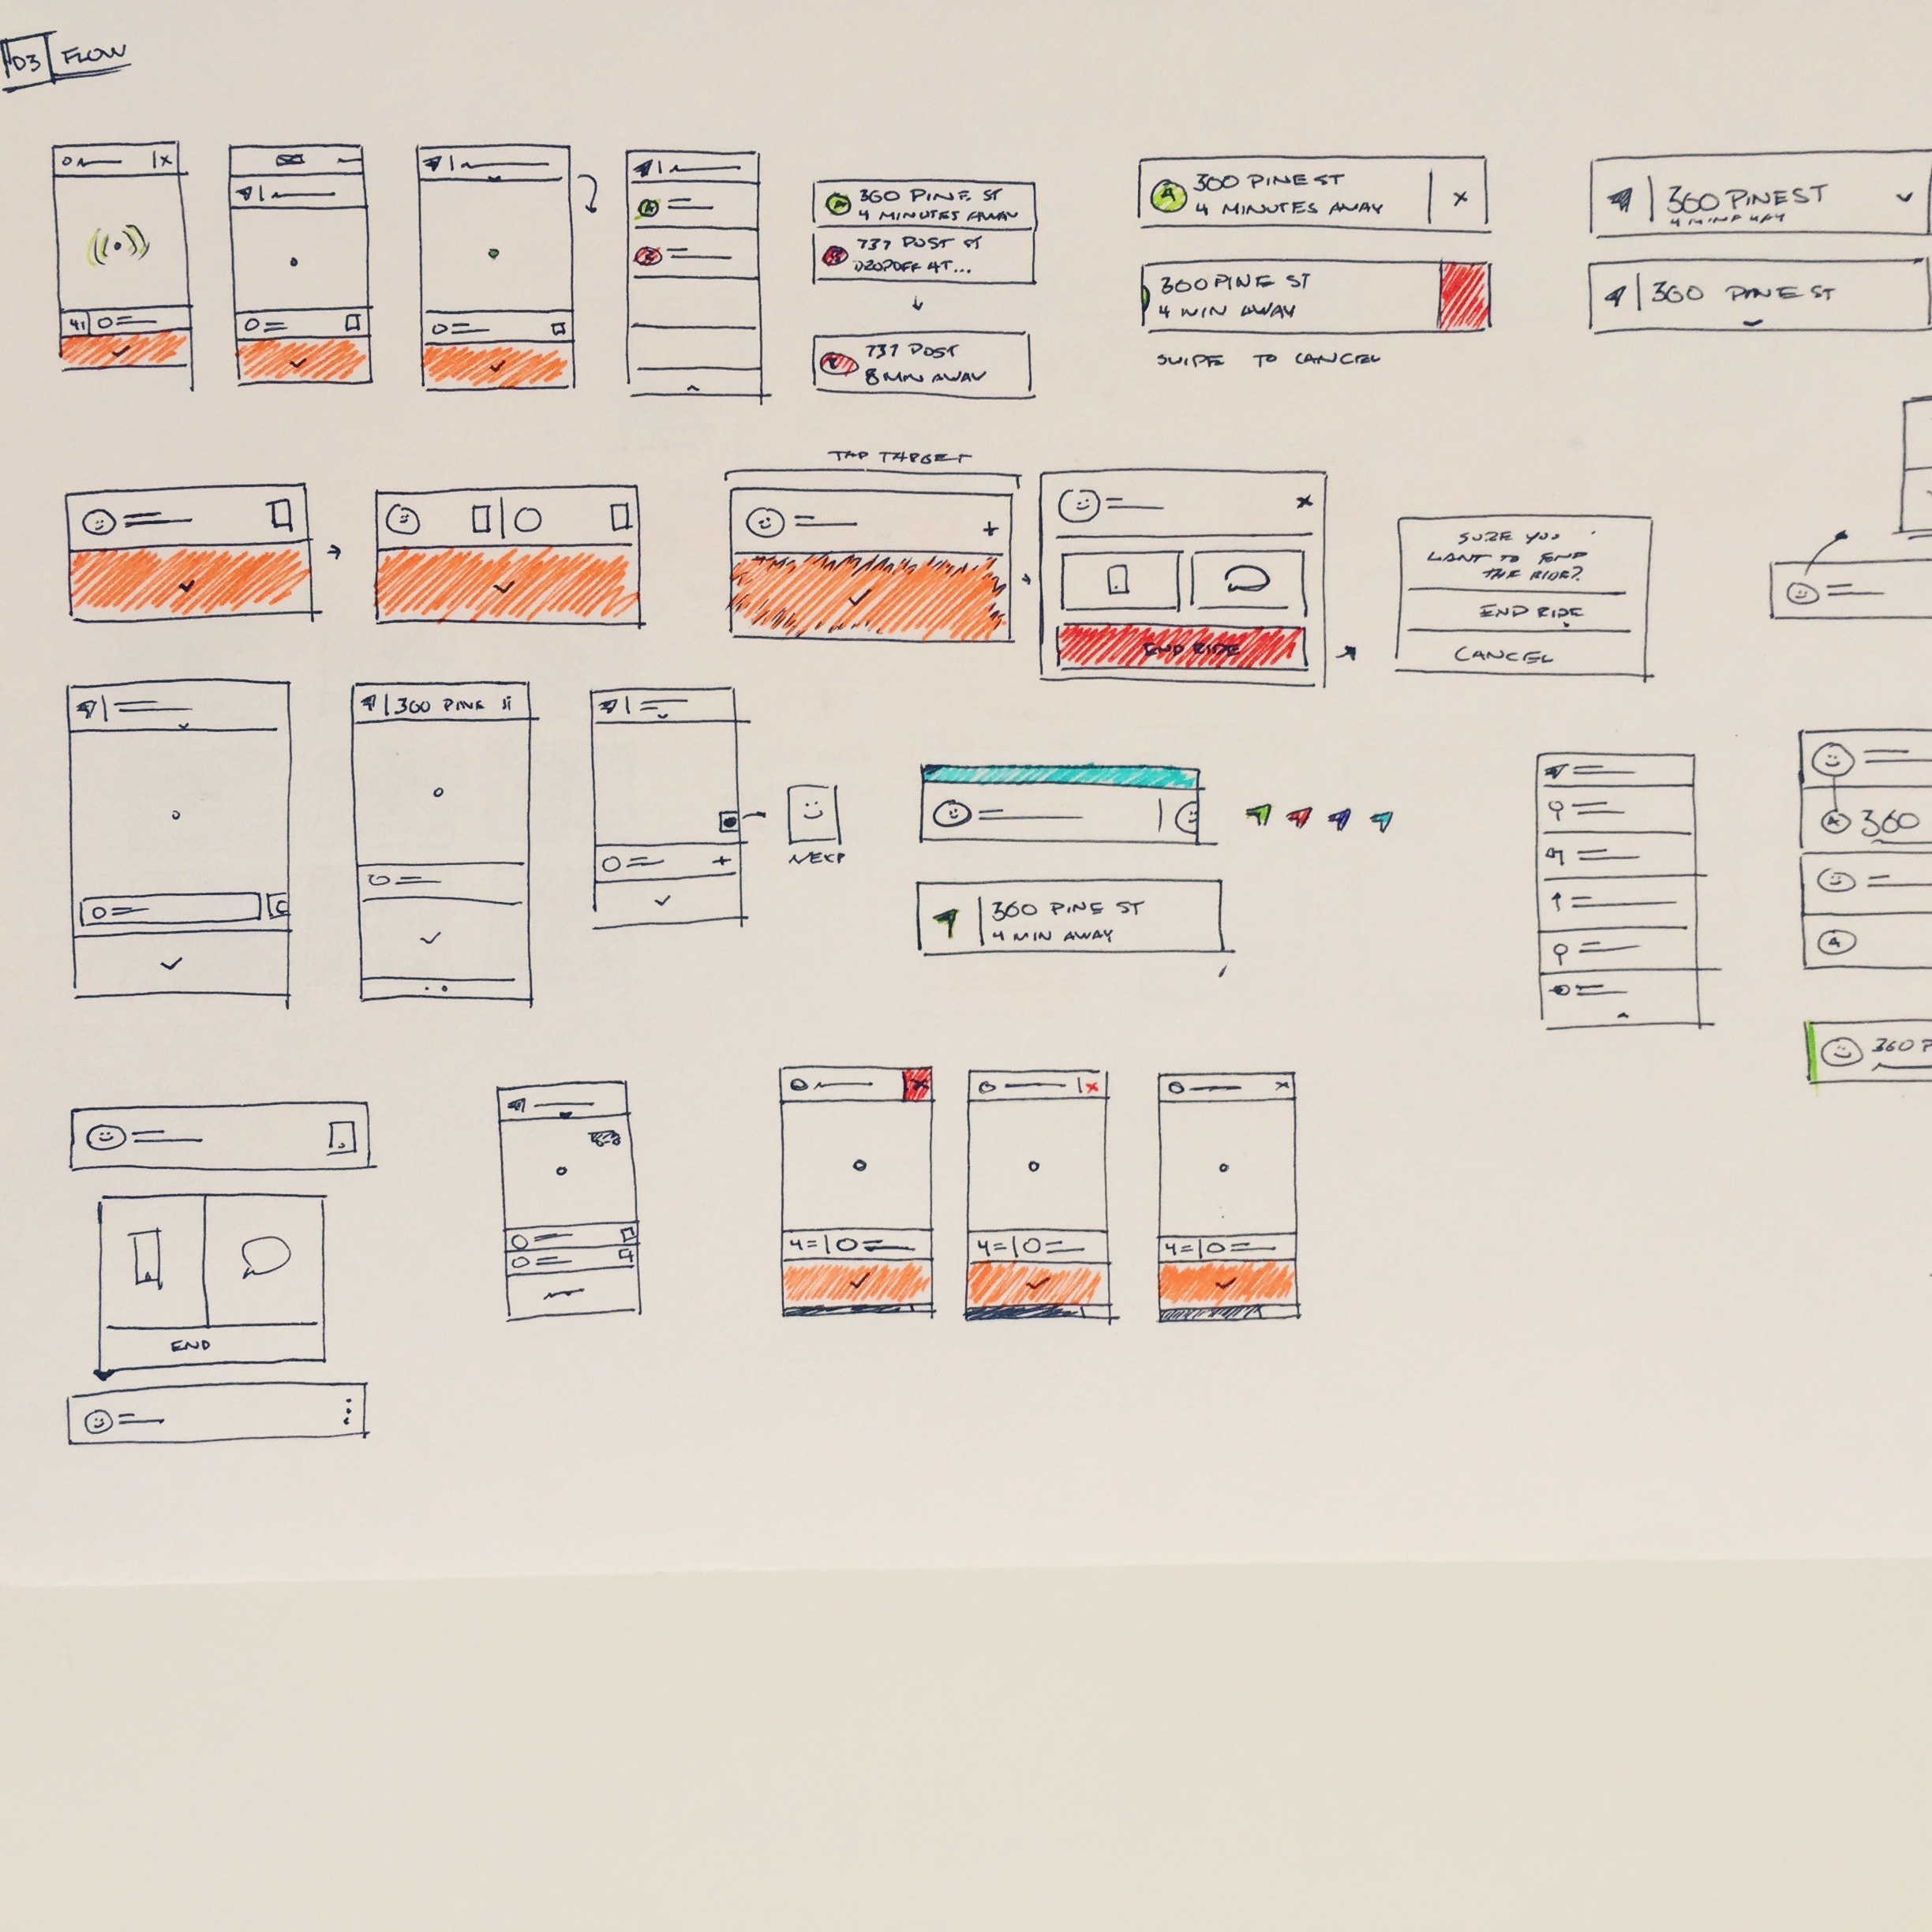 03 FLOW
360 PINE ST
4 MINUTES AWAY
737 POST ST
DROPOFF AT...
737 POST
8 MIN AWAY
360 PINE ST
4 MINUTES AWAY
X
360 PINE ST
4 MIN AWAY
SWIPE TO CANCEL
360 PINE ST
360 PINE ST
TAP TARGET
END RIDE
SURE YOU
WANT TO END
THE RIDE?
END RIDE
CANCEL
360 PINE ST
NEXT
360 PINE ST
4 MIN AWAY
A 360
A
360 P
END